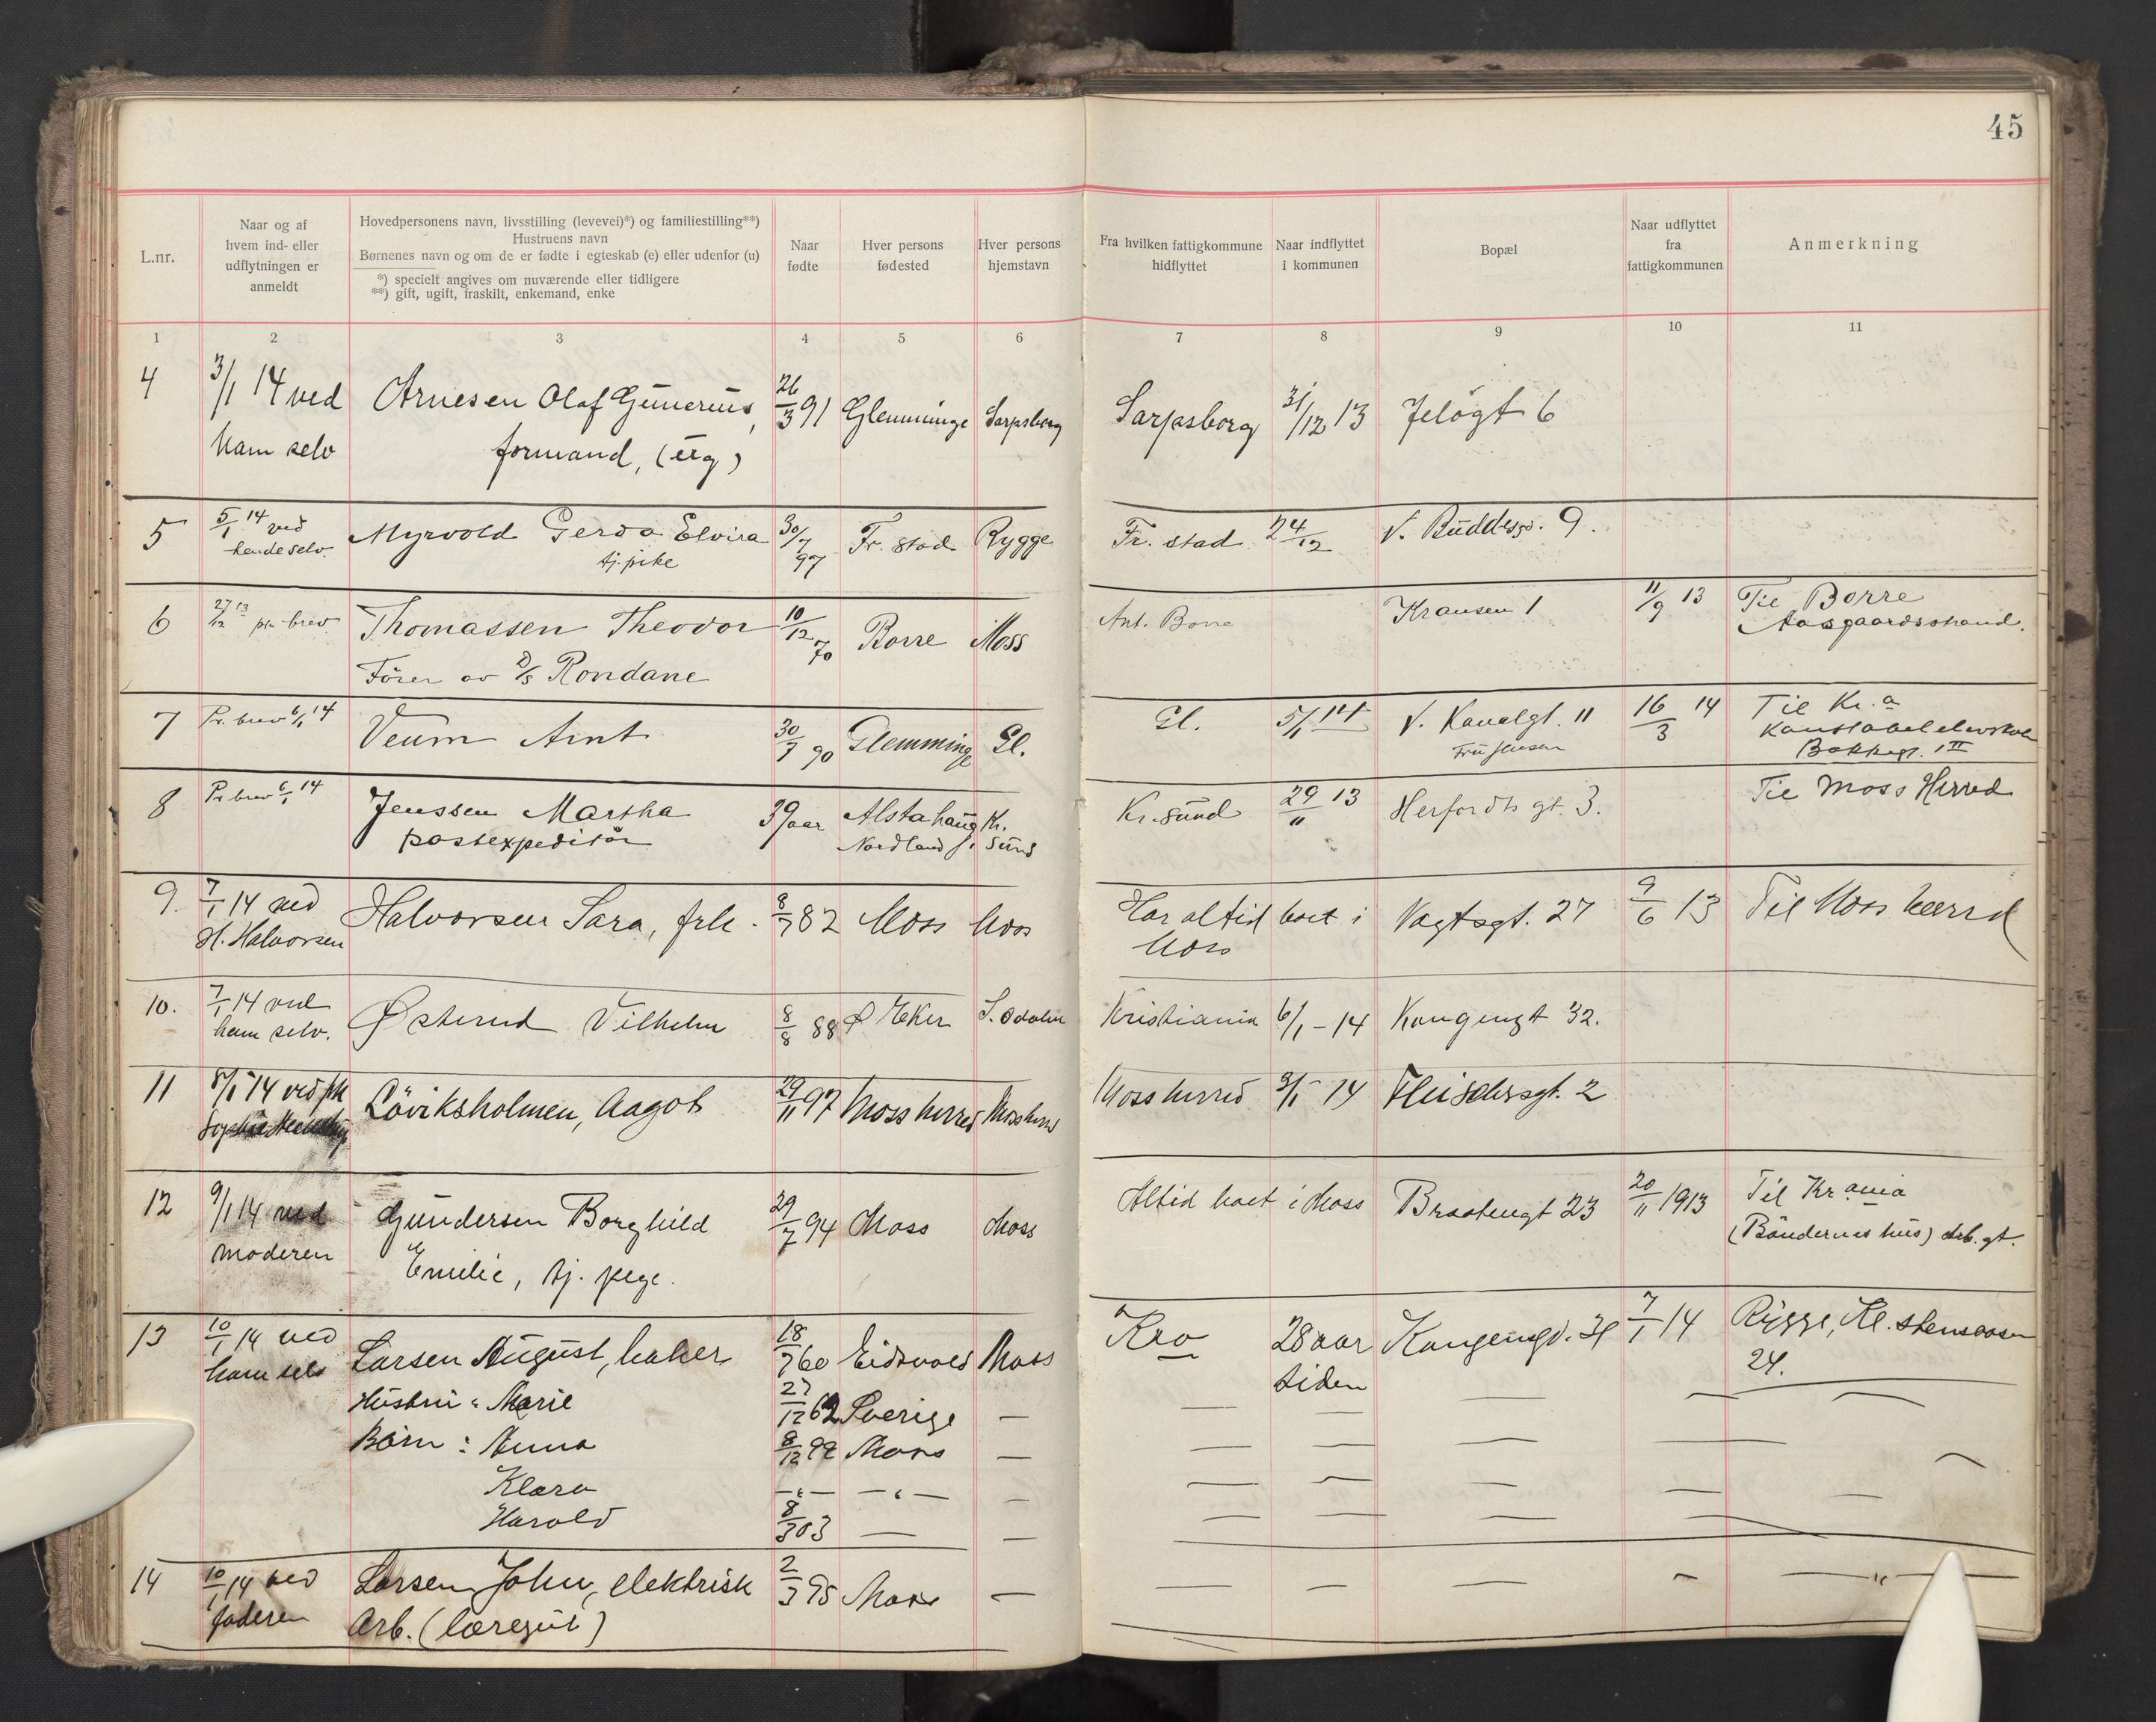 45
L.nr.
Naar og af hvem ind- eller udflytningen er anmeldt
Hovedpersonens navn, livsstilling (levevei)*) og familiestilling**)
Hustruens navn
Børnenes navn og om de er fødte i egteskab (e) eller udenfor (u)
*) specielt angives om nuværende eller tidligere
**) gift, ugift, fraskilt, enkemand, enke
Naar fødte
Hver persons fødested
Hver persons hjemstavn
Fra hvilken fattigkommune hidflyttet
Naar indflyttet i kommunen
Bopæl
Naar udflyttet fra fattigkommunen
Anmerkning
1 2 3 4 5 6 7 8 9 10 11
4 3/1 14 ved Arnesen Olaf Gunerius, 26/3 91 Glemminge Sarpsborg Sarpsborg 31/12 13 Jeløgt 6
ham selv formand, (ug)
5 5/1 14 ved Myrvold Gerda Elvira 30/7 97 Fr. stad Rygge Fr. stad 24/12 V. Buddesgd. 9.
hende selv. tj. pike
6 27/12 13 pr. brev Thomassen Theodor 10/12 70 Borre Moss Ant. Borre Kransen 1 11/9 13 Til Borre
Fører av D/S Rondane Aasgaardsstrand.
7 Pr. brev 6/1 14 Veum Arnt 30/7 90 Glemminge Gl. Gl. 5/1 14 V. Kanalgt. 11 16/3 14 Til Kr.a
Fru Jensen Konstabelelevskole
Bakkegt. 1 II
8 Pr brev 6/1 14 Jenssen Martha 39 aar Alstahaug Kr. Kr. sund 29/11 13 Herfordts gt. 3. Til Moss Herred
postexpeditør Nordland f. sund
9. 7/1 14 ved Halvorsen Sara, frk. 8/7 82 Moss Moss Har altid boet i Vogtsgt. 27 9/6 13 Til Moss herred
H. Halvorsen Moss
10. 7/1 14 ved Østerud Vilhelm 8/8 88 Ø Eker S. Odalen Kristiania 6/1 - 14 Kongensgt 32.
ham selv.
11 8/1 14 ved frk Löviksholmen, Aagot 29/11 97 Moss herred Moss herred Moss herred 3/1 - 14 Fleischersgt. 2
Sophie
12 9/1 14 ved Gundersen Borghild 29/7 94 Moss Moss Altid boet i Moss Braatengt 23 20/11 1913 Til Kr.ania
moderen Emilie, tj. pege. (Bøndernes hus)
13 10/1 14 ved Larsen August, baker 18/7 60 Eidsvold Moss Kra 28 aar Kongensgt. 31 7/1 14 Rygge, Kl. stensaasen
ham selv siden 24.
Hustru: Marie 27/12 62 Sverige —
Börn: Anna 8/12 99 Moss —
Klara —"— —"— —
Harald 8/3 03 — —
14 10/1 14 ved Larsen John, elektrisk 2/3 95 Moss — — — — — —"—
faderen Arb. (læregut)